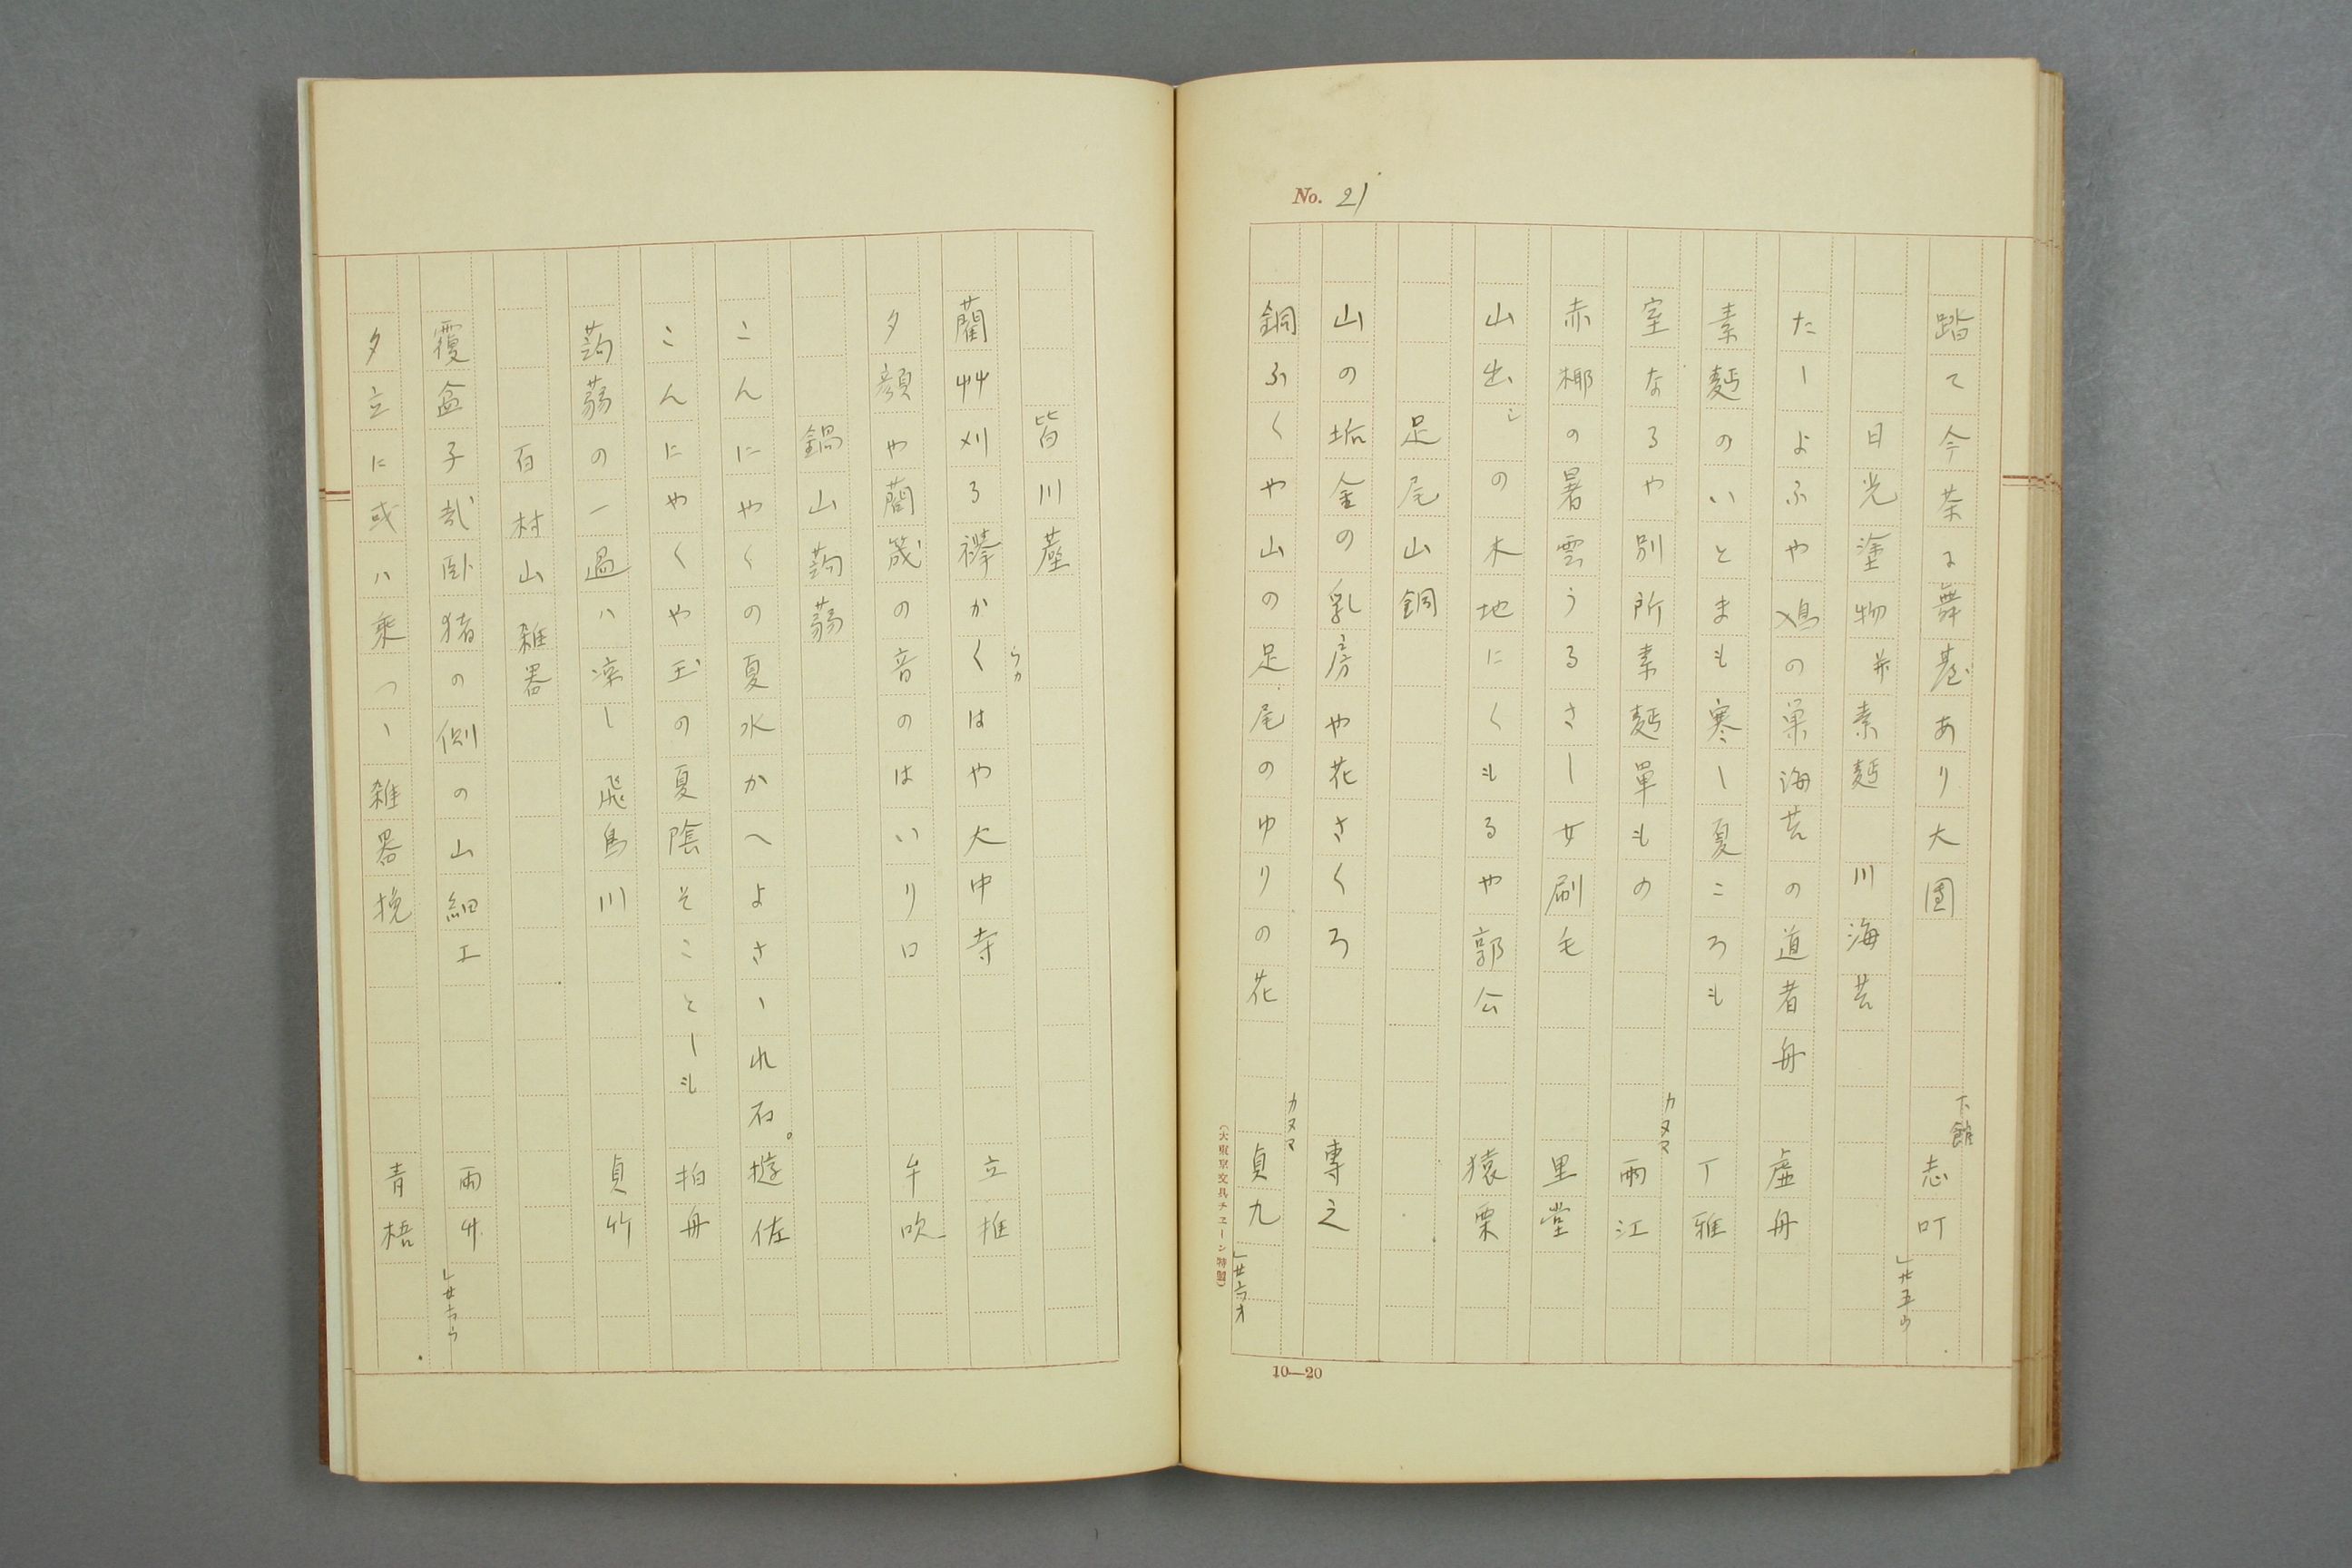 No. 21
踏て今茶る舞台あり大団 下館 志町 」廿五ウ
日光塗物并素麺 川海苔
たしよふや鳰の巣海苔の道者舟 虚舟
素麺のいとまも寒し夏ころも 丁雅
室なるや別所素麺単もの カヌマ 雨江
赤椰の暑雲うるさし女刷毛 里堂
山出シの木地にくもるや郭公 猿栗
足尾山銅
山の垢金の乳房や花さくろ 專之
銅ふくや山の足尾のゆりの花 カヌマ 貞九 」廿六オ
(大東京文具チェーン特製)
10—20
皆川藺
藺艸刈る襷かくはや大中寺 うカ 立推
夕顔や藺筬の音のはいり口 牛吹
鍋山蒟蒻
こんにやくの夏水かへよさゝれ石。 遊佐
こんにやくや玉の夏陰そことしも 柏舟
蒟蒻の一過ハ凉し飛鳥川 貞竹
百村山雑器
覆盆子哉臥猪の側の山細工 雨竹 」廿六ウ
夕立に或ハ乗つゝ雑器挽 青梧